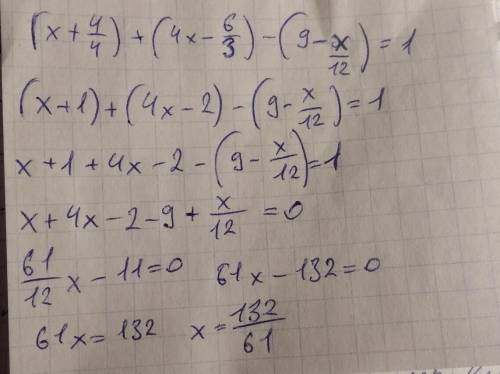 (x + 4/4) + (4x - 6/3) - (9 - x/12) = 1
(x+1) + (4x-2) - (9 - x/12) = 1
x + 1 + 4x - 2 - (9 - x/12) = 1
x + 4x - 2 - 9 + x/12 = 0
61/12 x - 11 = 0 61x - 132 = 0
61x = 132 x = 132/61